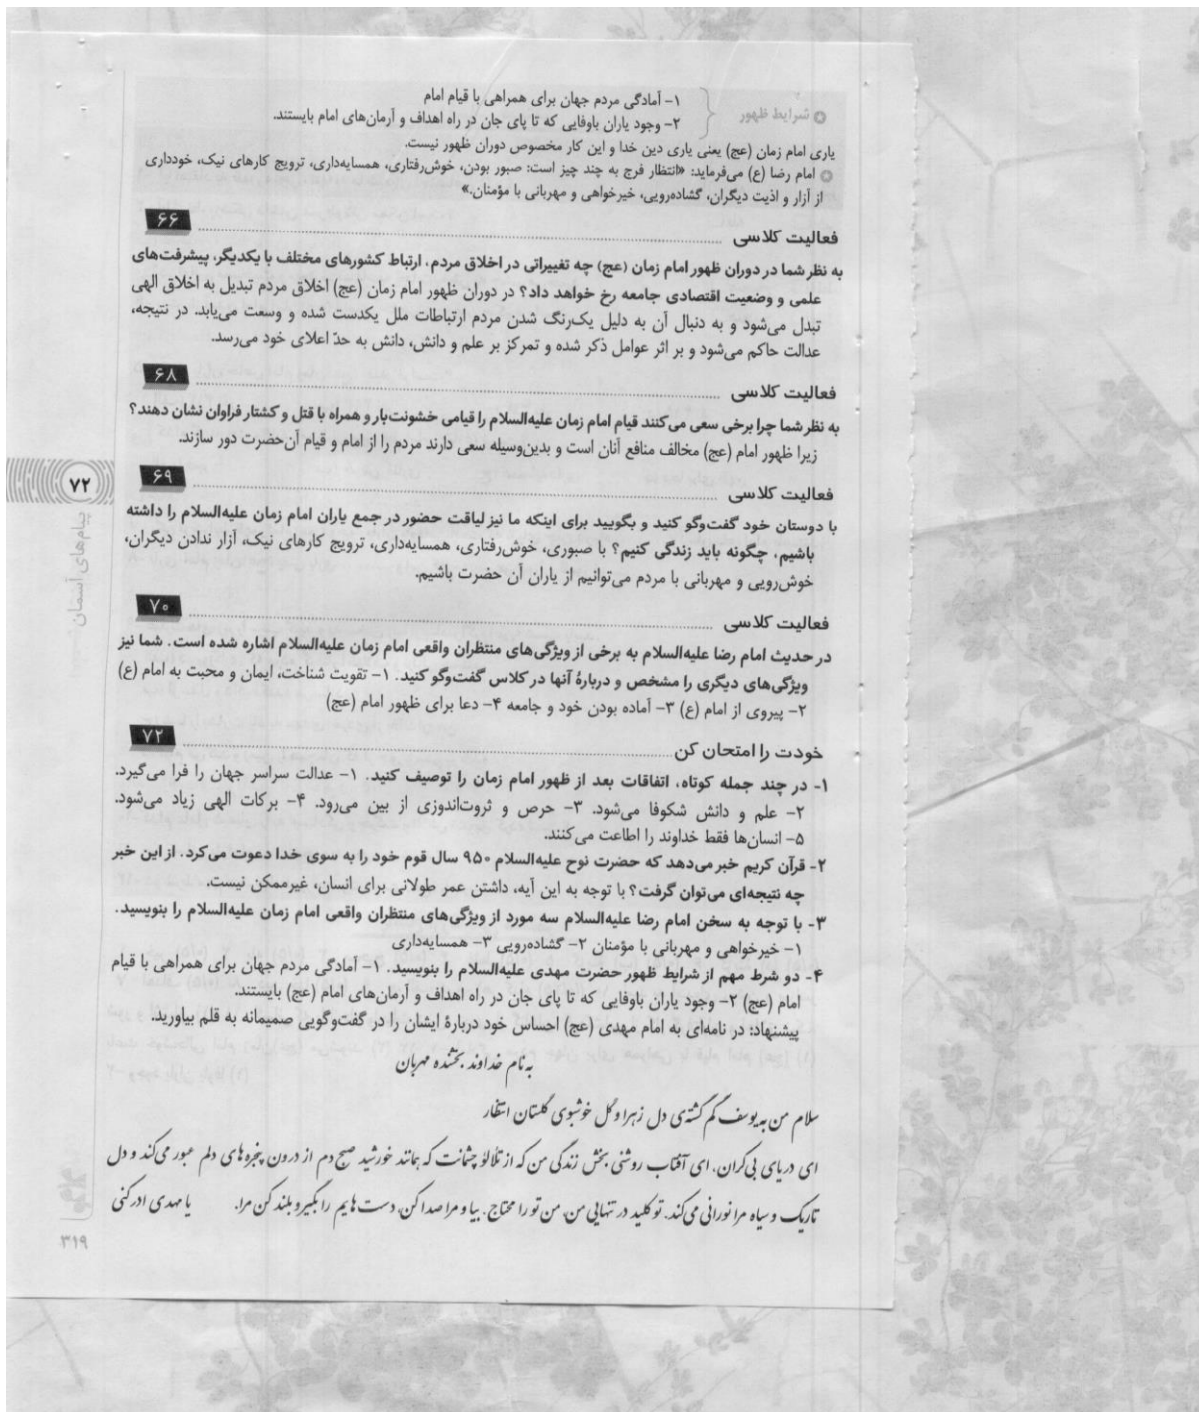 ۱- آمادگی مردم جهان برای همراهی با قیام امام
شرایط ظهور
۲- وجود یاران باوفایی که تا پای جان در راه اهداف و آرمان‌های امام بایستند.
یاری امام زمان (عج) یعنی یاری دین خدا و این کار مخصوص دوران ظهور نیست.
امام رضا (ع) می‌فرماید: «انتظار فرج به چند چیز است: صبور بودن، خوش‌رفتاری، همسایه‌داری، ترویج کارهای نیک، خودداری
از آزار و اذیت دیگران، گشاده‌رویی، خیرخواهی و مهربانی با مؤمنان.»
فعالیت کلاسی ۶۶
به نظر شما در دوران ظهور امام زمان (عج) چه تغییراتی در اخلاق مردم، ارتباط کشورهای مختلف با یکدیگر، پیشرفت‌های
علمی و وضعیت اقتصادی جامعه رخ خواهد داد؟ در دوران ظهور امام زمان (عج) اخلاق مردم تبدیل به اخلاق الهی
تبدل می‌شود و به دنبال آن به دلیل یک‌رنگ شدن مردم ارتباطات ملل یکدست شده و وسعت می‌یابد. در نتیجه،
عدالت حاکم می‌شود و بر اثر عوامل ذکر شده و تمرکز بر علم و دانش، دانش به حدّ اعلای خود می‌رسد.
فعالیت کلاسی ۶۸
به نظر شما چرا برخی سعی می‌کنند قیام امام زمان علیه‌السلام را قیامی خشونت‌بار و همراه با قتل و کشتار فراوان نشان دهند؟
زیرا ظهور امام (عج) مخالف منافع آنان است و بدین‌وسیله سعی دارند مردم را از امام و قیام آن‌حضرت دور سازند.
فعالیت کلاسی ۶۹
با دوستان خود گفت‌وگو کنید و بگویید برای اینکه ما نیز لیاقت حضور در جمع یاران امام زمان علیه‌السلام را داشته
باشیم، چگونه باید زندگی کنیم؟ با صبوری، خوش‌رفتاری، همسایه‌داری، ترویج کارهای نیک، آزار ندادن دیگران،
خوش‌رویی و مهربانی با مردم می‌توانیم از یاران آن حضرت باشیم.
فعالیت کلاسی ۷۰
در حدیث امام رضا علیه‌السلام به برخی از ویژگی‌های منتظران واقعی امام زمان علیه‌السلام اشاره شده است. شما نیز
ویژگی‌های دیگری را مشخص و دربارهٔ آنها در کلاس گفت‌وگو کنید. ۱- تقویت شناخت، ایمان و محبت به امام (ع)
۲- پیروی از امام (ع) ۳- آماده بودن خود و جامعه ۴- دعا برای ظهور امام (عج)
خودت را امتحان کن ۷۲
۱- در چند جمله کوتاه، اتفاقات بعد از ظهور امام زمان را توصیف کنید. ۱- عدالت سراسر جهان را فرا می‌گیرد.
۲- علم و دانش شکوفا می‌شود. ۳- حرص و ثروت‌اندوزی از بین می‌رود. ۴- برکات الهی زیاد می‌شود.
۵- انسان‌ها فقط خداوند را اطاعت می‌کنند.
۲- قرآن کریم خبر می‌دهد که حضرت نوح علیه‌السلام ۹۵۰ سال قوم خود را به سوی خدا دعوت می‌کرد. از این خبر
چه نتیجه‌ای می‌توان گرفت؟ با توجه به این آیه، داشتن عمر طولانی برای انسان، غیرممکن نیست.
۳- با توجه به سخن امام رضا علیه‌السلام سه مورد از ویژگی‌های منتظران واقعی امام زمان علیه‌السلام را بنویسید.
۱- خیرخواهی و مهربانی با مؤمنان ۲- گشاده‌رویی ۳- همسایه‌داری
۴- دو شرط مهم از شرایط ظهور حضرت مهدی علیه‌السلام را بنویسید. ۱- آمادگی مردم جهان برای همراهی با قیام
امام (عج) ۲- وجود یاران باوفایی که تا پای جان در راه اهداف و آرمان‌های امام (عج) بایستند.
پیشنهاد: در نامه‌ای به امام مهدی (عج) احساس خود دربارهٔ ایشان را در گفت‌وگویی صمیمانه به قلم بیاورید.
به نام خداوند بخشنده مهربان
سلام من به یوسف گم گشته‌ی دل زهرا و گل خوشبوی گلستان انتظار
ای دریای بی‌کران، ای آفتاب روشنی بخش زندگی من که از تلالؤ چشمانت که همانند خورشید صبح دم از درون پنجره‌های دلم عبور می‌کند و دل
تاریک و سیاه مرا نورانی می‌کند. تو کلید در تنهایی من، من تو را محتاج. بیا و مرا صدا کن، دست‌هایم را بگیر و بلند کن مرا. یا مهدی ادرکنی
۷۲
پیام‌های آسمان
۳۱۹